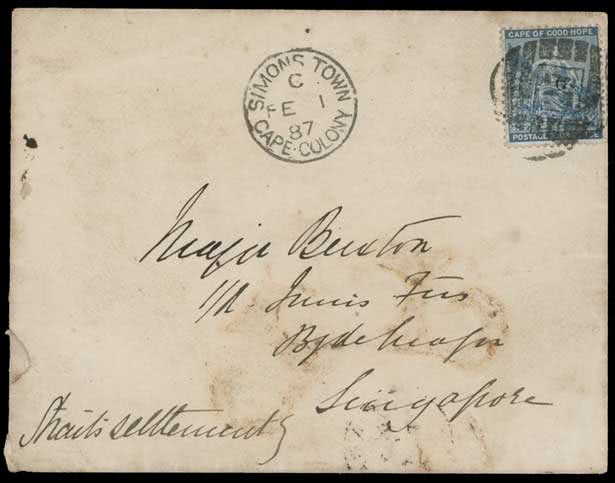 CAPE OF GOOD HOPE
POSTAGE
SIMONS TOWN
C
FE 1
87
CAPE·COLONY
Major Buxton
1/R Innis Fus
Byde Major
Singapore
Straits settlements